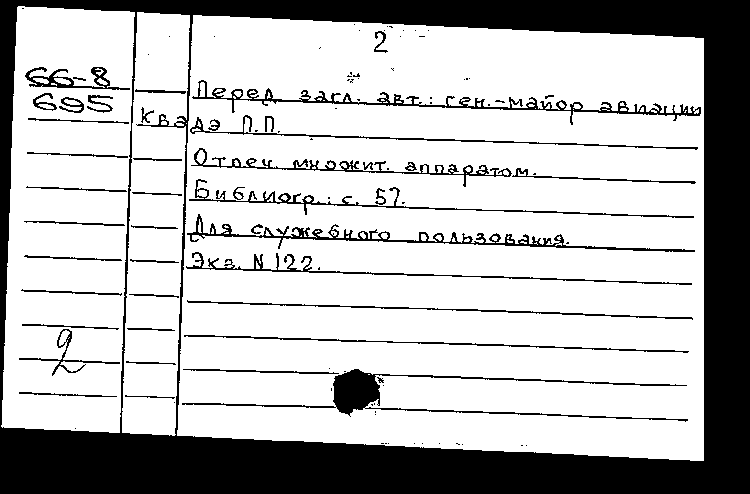 2
66-8
695
Перед загл. авт.: ген.-майор авиации
Квадэ П.П.
Отпеч. множит. аппаратом.
Библиогр.: с. 57.
Для служебного пользования.
Экз. N 122.
2